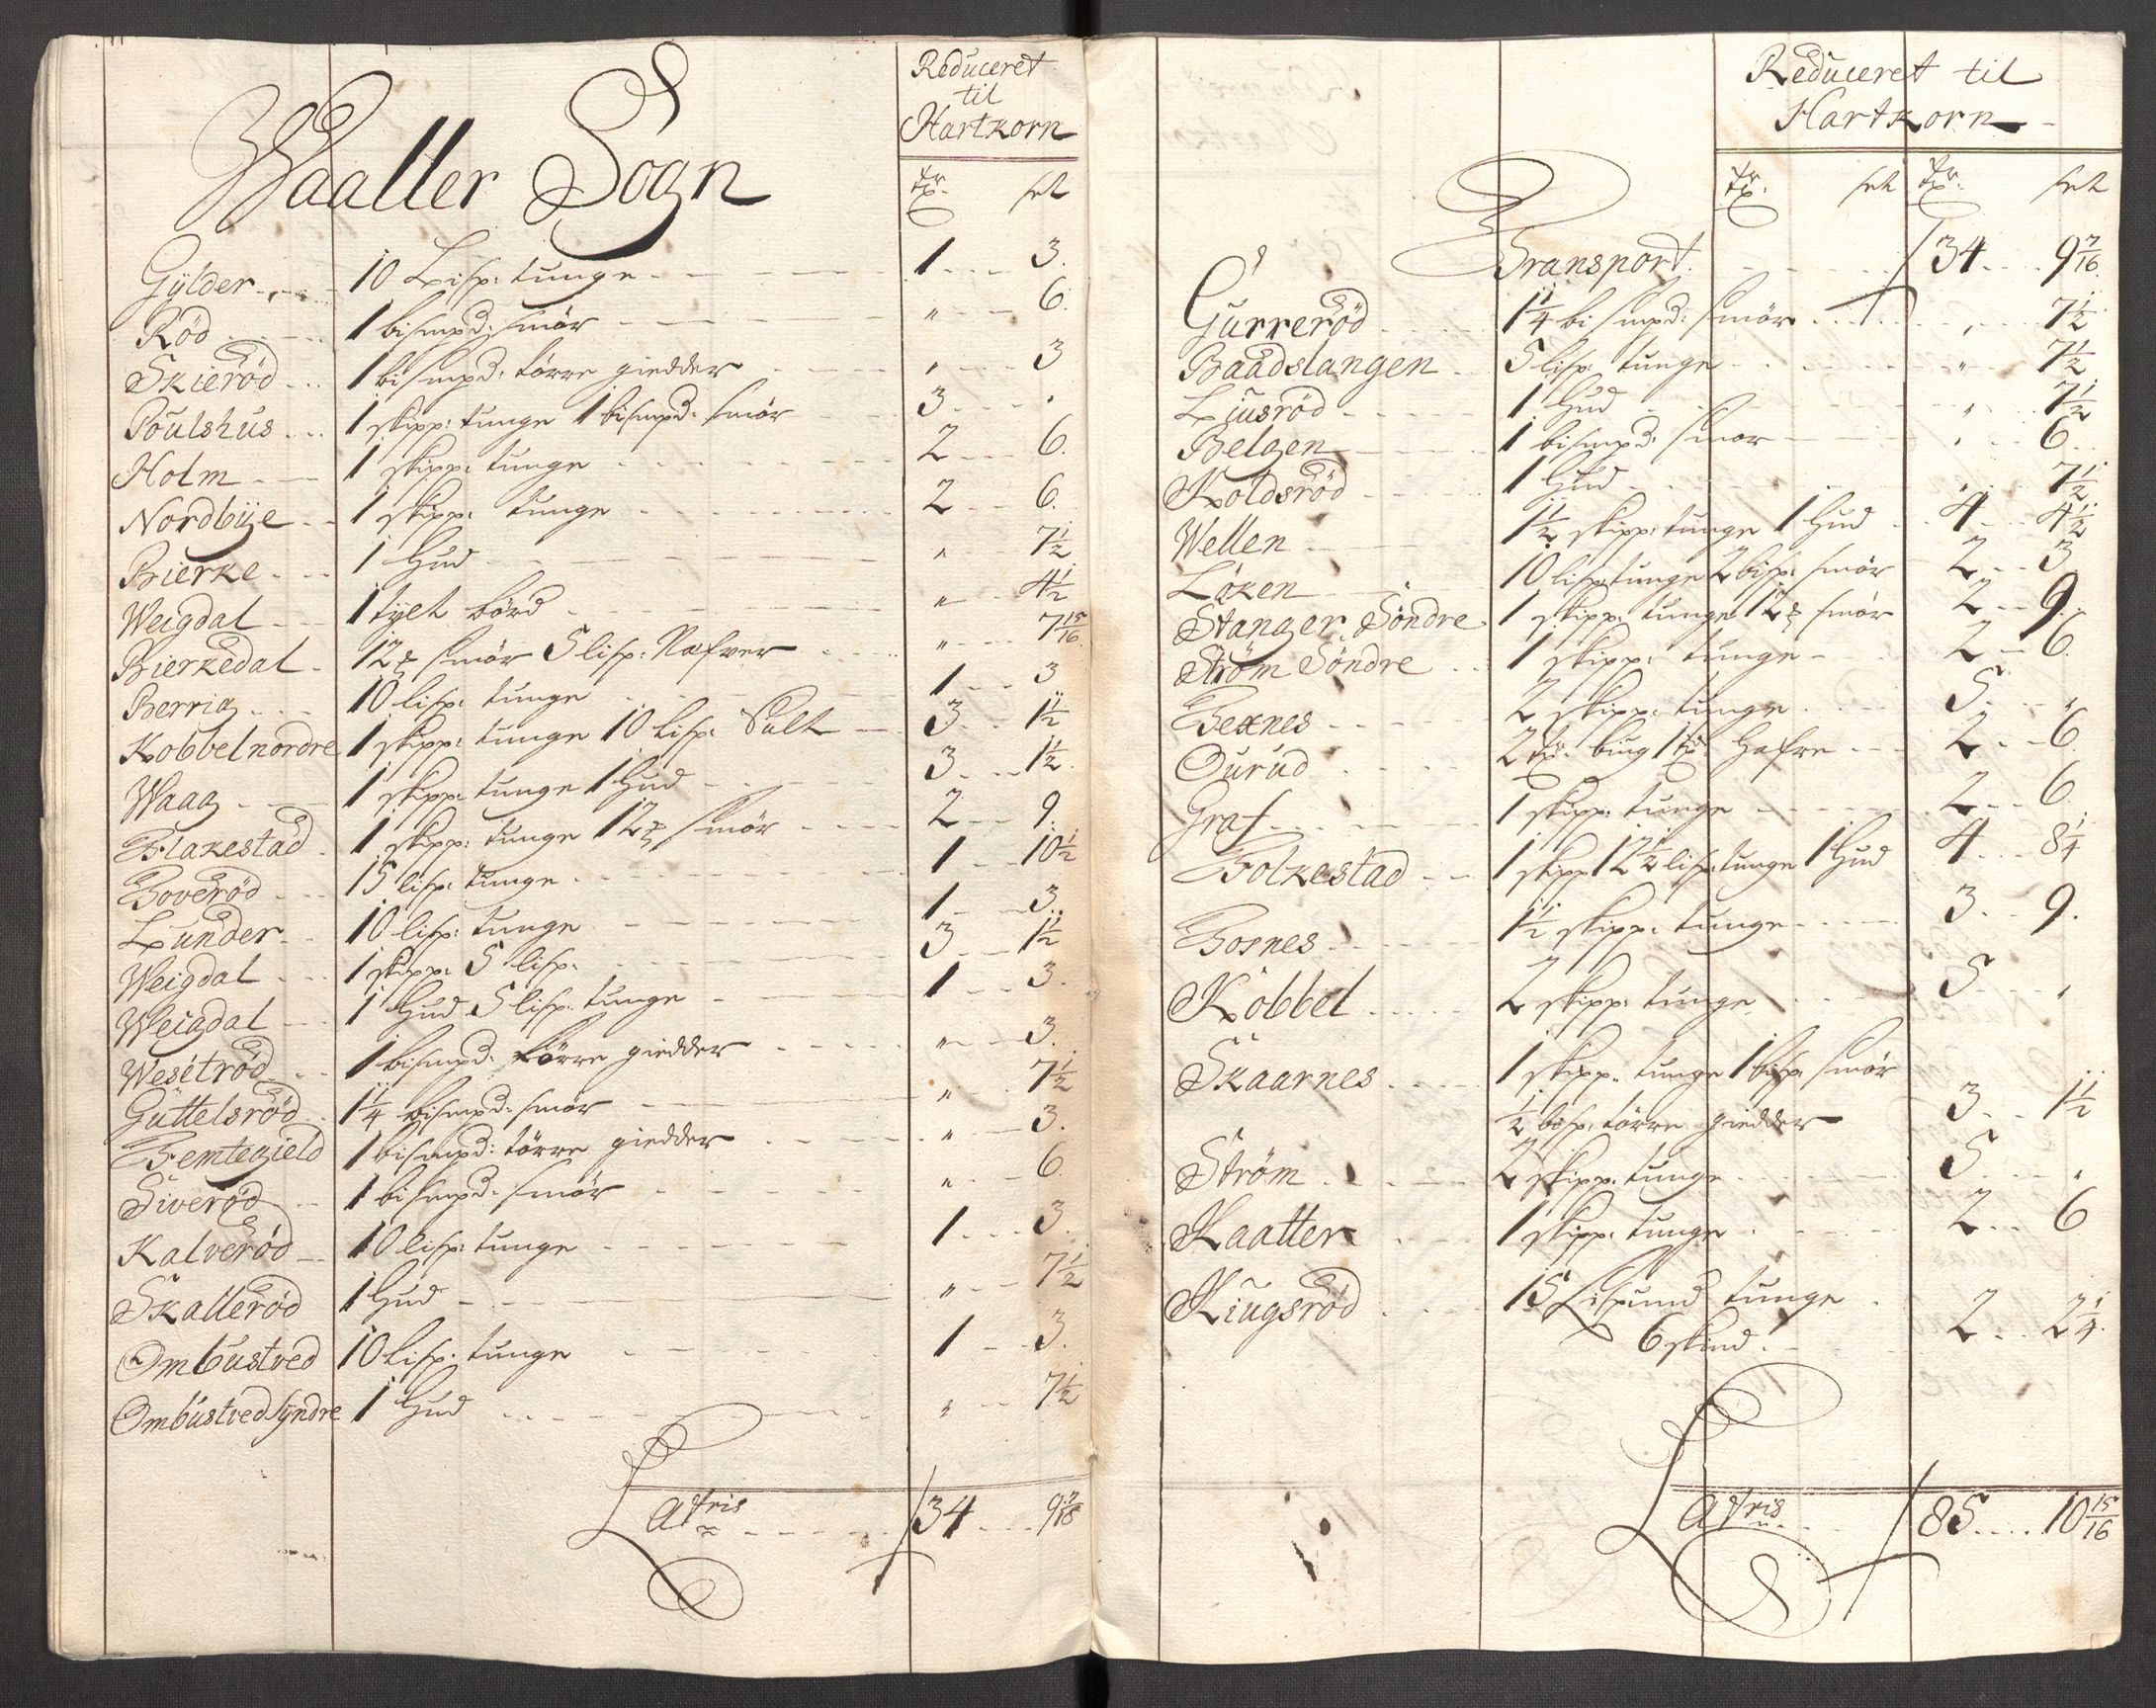 Waaller Sogn
Reduceret
til
Hartkorn
tr. sk
Gÿlder 10 Lisp: tunge 1 3.
Röd 1 bismpd: smör „ 6.
Skieröd 1 bismpd: törre giedder „ 3
Poulshus 1 skipp: tunge 1 bismpd: smör 3 „
Holm 1 skipp: tunge 2 6.
Nordbÿe 1 skipp: tunge 2 6.
Bierke 1 Hud „ 7½
Weigdal 1 tylt börd „ 4½
Bierkedal 12 smör 5 lisp: Nafver „ 7 15/16
Berrig 10 lisp: tunge 1 3
Kobbel nordre 1 skipp: tunge 10 Lisp: Salt 3 1½
Waag 1 skipp: tunge 1 Hud 3 1½
Flakestad 1 skipp: tunge 12 smör 2 9.
Boveröd 15 lisp: tunge 1 10½
Lunder 10 lisp: tunge 1 3.
Weigdal 1 skipp: 5 lisp: 3 1½
Weigdal 1 Hud 5 lisp: tunge 1 3.
Wesetröd 1 bismpd: törre giedder „ 3.
Guttelsröd 1¼ bismpd: smör „ 7½
Femtegield 1 bismpd: törre giedder „ 3.
Siveröd 1 bismpd: smör „ 6.
Kalveröd 10 lisp: tunge 1 3.
Skalleröd 1 Hud „ 7½
Ombustved 10 Lisp: tunge 1 3.
Ombustved syndre 1 Hud „ 7½
Latris 34 9 7/16
Reduceret til
Hartkorn
tr. sk tr. sk
Transport 34 9 7/16
Gurreröd 1¼ bismpd: smör „ 7½
Baadslangen 5 lisp: tunge „ 7½
Liusröd 1 Hud „ 7½
Belgen 1 bismpd: smör „ 6
Koldsröd 1 Hud „ 7½
Wellen 1½ skipp: tunge 1 Hud 4 4½
Löken 10 lisp: tunge 2 bisp: smör 2 3
Stanger Söndre 1 skipp: tunge 12 smör 2 9.
Ström Söndre 1 skipp: tunge 2 6.
Texnes 2 skipp: tunge 5 „
Ourud 2 tr. bug 1 tr. Hafre 2 6
Graf 1 skipp: tunge 2 6
Folkestad 1 skipp 12½ lisp: tunge 1 Hud 4 8¼
Fosnes 1½ skipp: tunge 3 9.
Kobbel 2 skipp: tunge 5 „
Skaarnes 1 skipp: tunge 1 bisp: smör
½ bisp: törre giedder 3 1½
Ström 2 skipp: tunge 5 „
Kaatter 1 skipp: tunge 2 6
Kiugsröd 15 Lispund tunge
6 skind 2 2¼
Latris 85 10 15/16